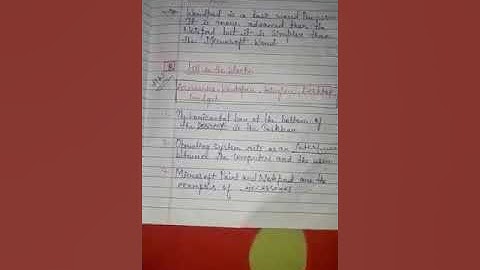 Wordpad is a text word Program
It is more advanced than the
Notepad but it is simpler than
the Microsoft Word
B. Fill in the blanks
Accessories, Desktop, Interface, Desktop,
Gadget
A horizontal bar at the bottom of
the screen is the Taskbar
Operating System acts as an Interface
between the computers and the user
Microsoft Paint and Notepad are the
examples of accessories